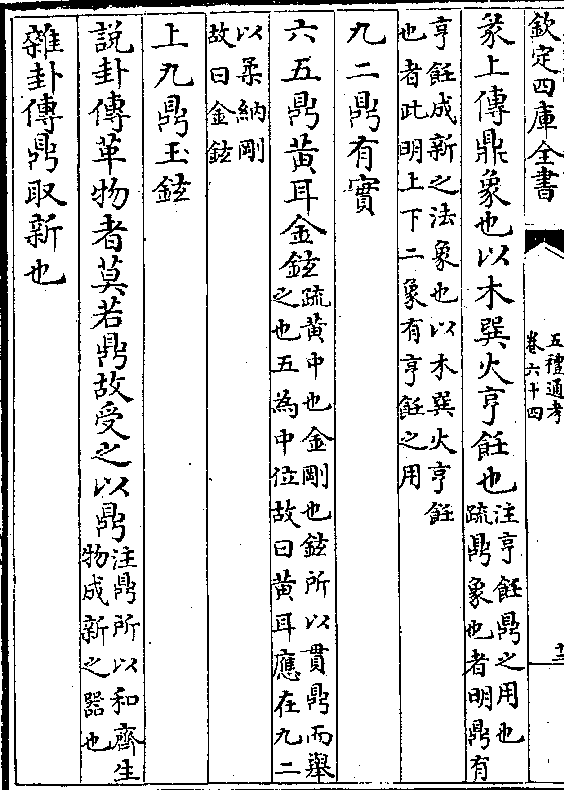 欽定四庫全書
五禮通考
卷六十四
彖上傳鼎象也以木巽火亨飪也
注亨飪鼎之用也
疏鼎象也者明鼎有
亨飪成新之法象也以木巽火亨飪
也者此明上下二象有亨飪之用
九二鼎有實
六五鼎黃耳金鉉
疏黃中也金剛也鉉所以貫鼎而舉
之也五為中位故曰黃耳應在九二
以柔納剛
故曰金鉉
上九鼎玉鉉
說卦傳革物者莫若鼎故受之以鼎
注鼎所以和齊生
物成新之器也
雜卦傳鼎取新也